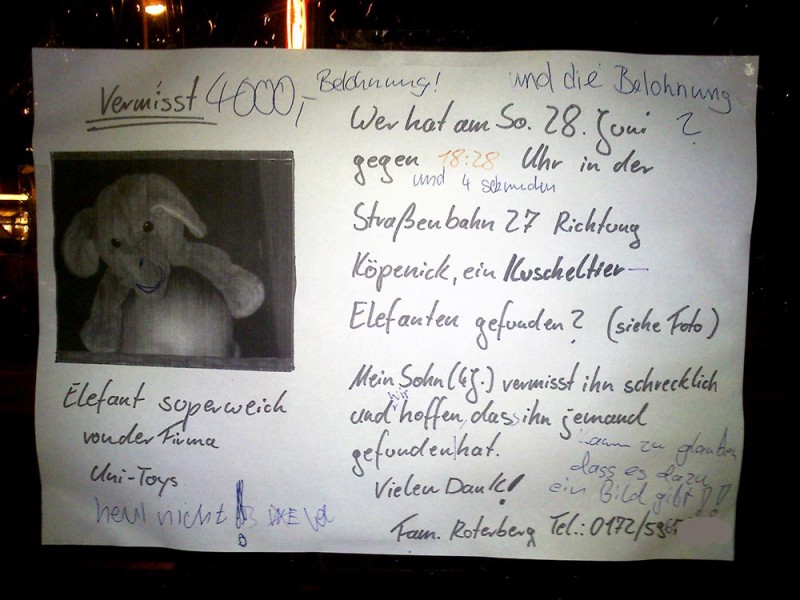 Vermisst 4000,- Belohnung!
Elefant superweich
von der Firma
Uni-Toys
heul nicht!
und die Belohnung
?
Wer hat am So. 28. Juni
gegen 18:28 Uhr in der
und 4 sekunden
Straßenbahn 27 Richtung
Köpenick, ein Kuscheltier-
Elefanten gefunden? (siehe Foto)
Mein Sohn (4J.) vermisst ihn schrecklich
und wir hoffen, dass ihn jemand
gefunden hat.
Vielen Dank!
kaum zu glauben
dass es dazu
ein Bild gibt!!
Fam. Roterberg Tel.: 0172/59